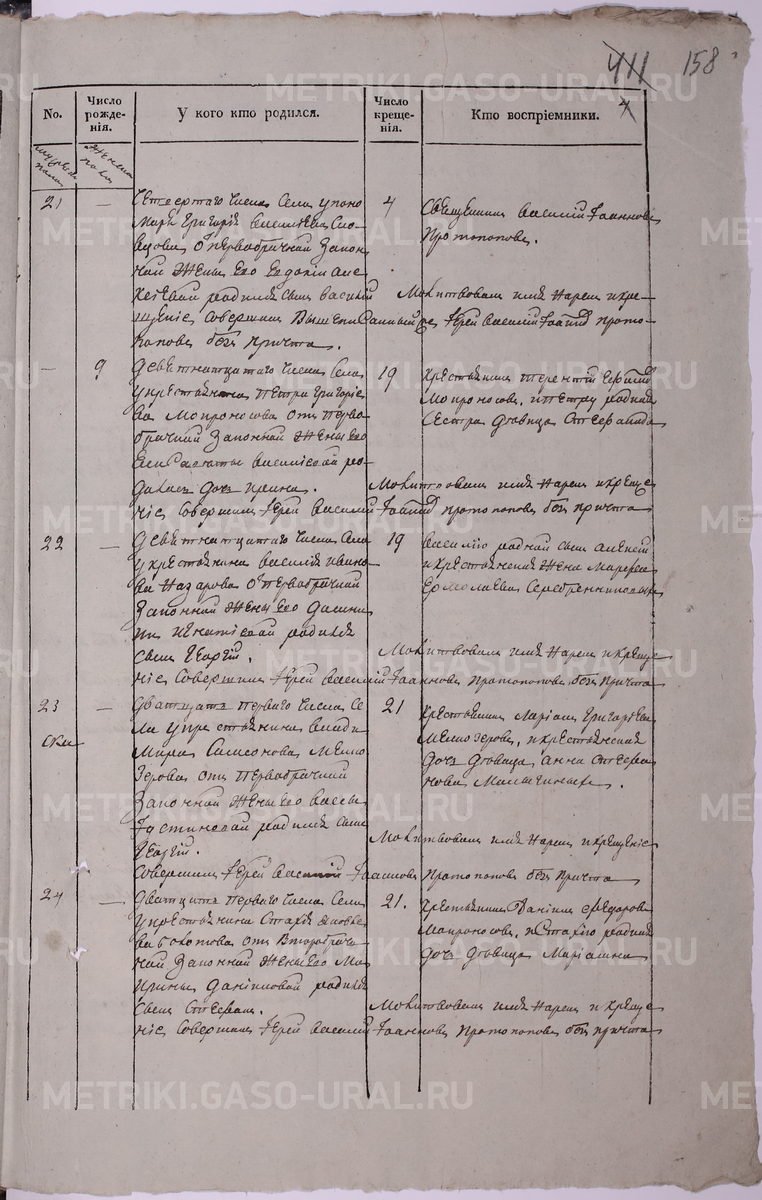 411 158
No.
Число рожде-нія.
У кого кто родился.
Число креще-нія.
Кто воспріемники.
мужеска пола
женска пола
21 — Четвертаго Числа Села у поно
маря Григорія Васильева Сло
вцова отъ первобрачной Закон
ной Жены его Евдокіи Алек
сеевой родился сынъ Василій
4 Священникъ Василій Іоанновъ
Протопоповъ.
Молитвовалъ имя Нарекъ и кре
щеніе Совершилъ Вышеписанный Іерей Василій прото
поповъ безъ Причта.
— 9 Девятнатцатаго Числа Села
у крестьянина Петра Григоріе
ва Мокроносова отъ перво
брачной Законной Жены его
Василіевой ро
дилась дочь Ирина.
19 Крестьянинъ Терентій
Мокроносовъ, и Петру родная
Сестра девица Стефанида
Молитвовалъ имя Нарекъ и Креще
ніе Совершилъ Іерей Василій протопоповъ безъ Причта
22 — Девятнатцатаго Числа Села
у крестьянина Василія Ивано
ва Назарова отъ первобрачной
Законной Жены его
родился
Сынъ Георгій.
19 Василію родной сынъ Алексей
и крестьянская Жена Марфа
Ермолаева
Молитвовалъ имя Нарекъ и Креще
ніе Совершилъ Іерей Василій Іоанновъ Протопоповъ безъ Причта
23 — Дватцать перваго Числа Се
ла у крестьянина Влади
мира Самсонова Мелко
зерова отъ Первобрачной
Законной Жены его Вассы
Іустиновой родился Сынъ
Георгій.
21 Крестьянинъ Маріанъ Григорьевъ
Мелкозеровъ, и крестьянская
дочь девица Анна Стефа
нова
Молитвовалъ имя Нарекъ и крещеніе
Совершилъ Іерей Василій Іоанновъ Протопоповъ безъ Причта
24 — Дватцать перваго Числа Села
у крестьянина Стахія
отъ Второбрач
ной Законной Жены его Ма
крины Даніиловой родился
Сынъ Стефанъ.
21. Крестьянинъ Даніилъ Федоровъ
Мокроносовъ, и Стахію родная
дочь девица Маріамна
Молитвовалъ имя Нарекъ и Креще
ніе Совершилъ Іерей Василій Іоанновъ Протопоповъ безъ причта
METRIKI.GASO-URAL.RU